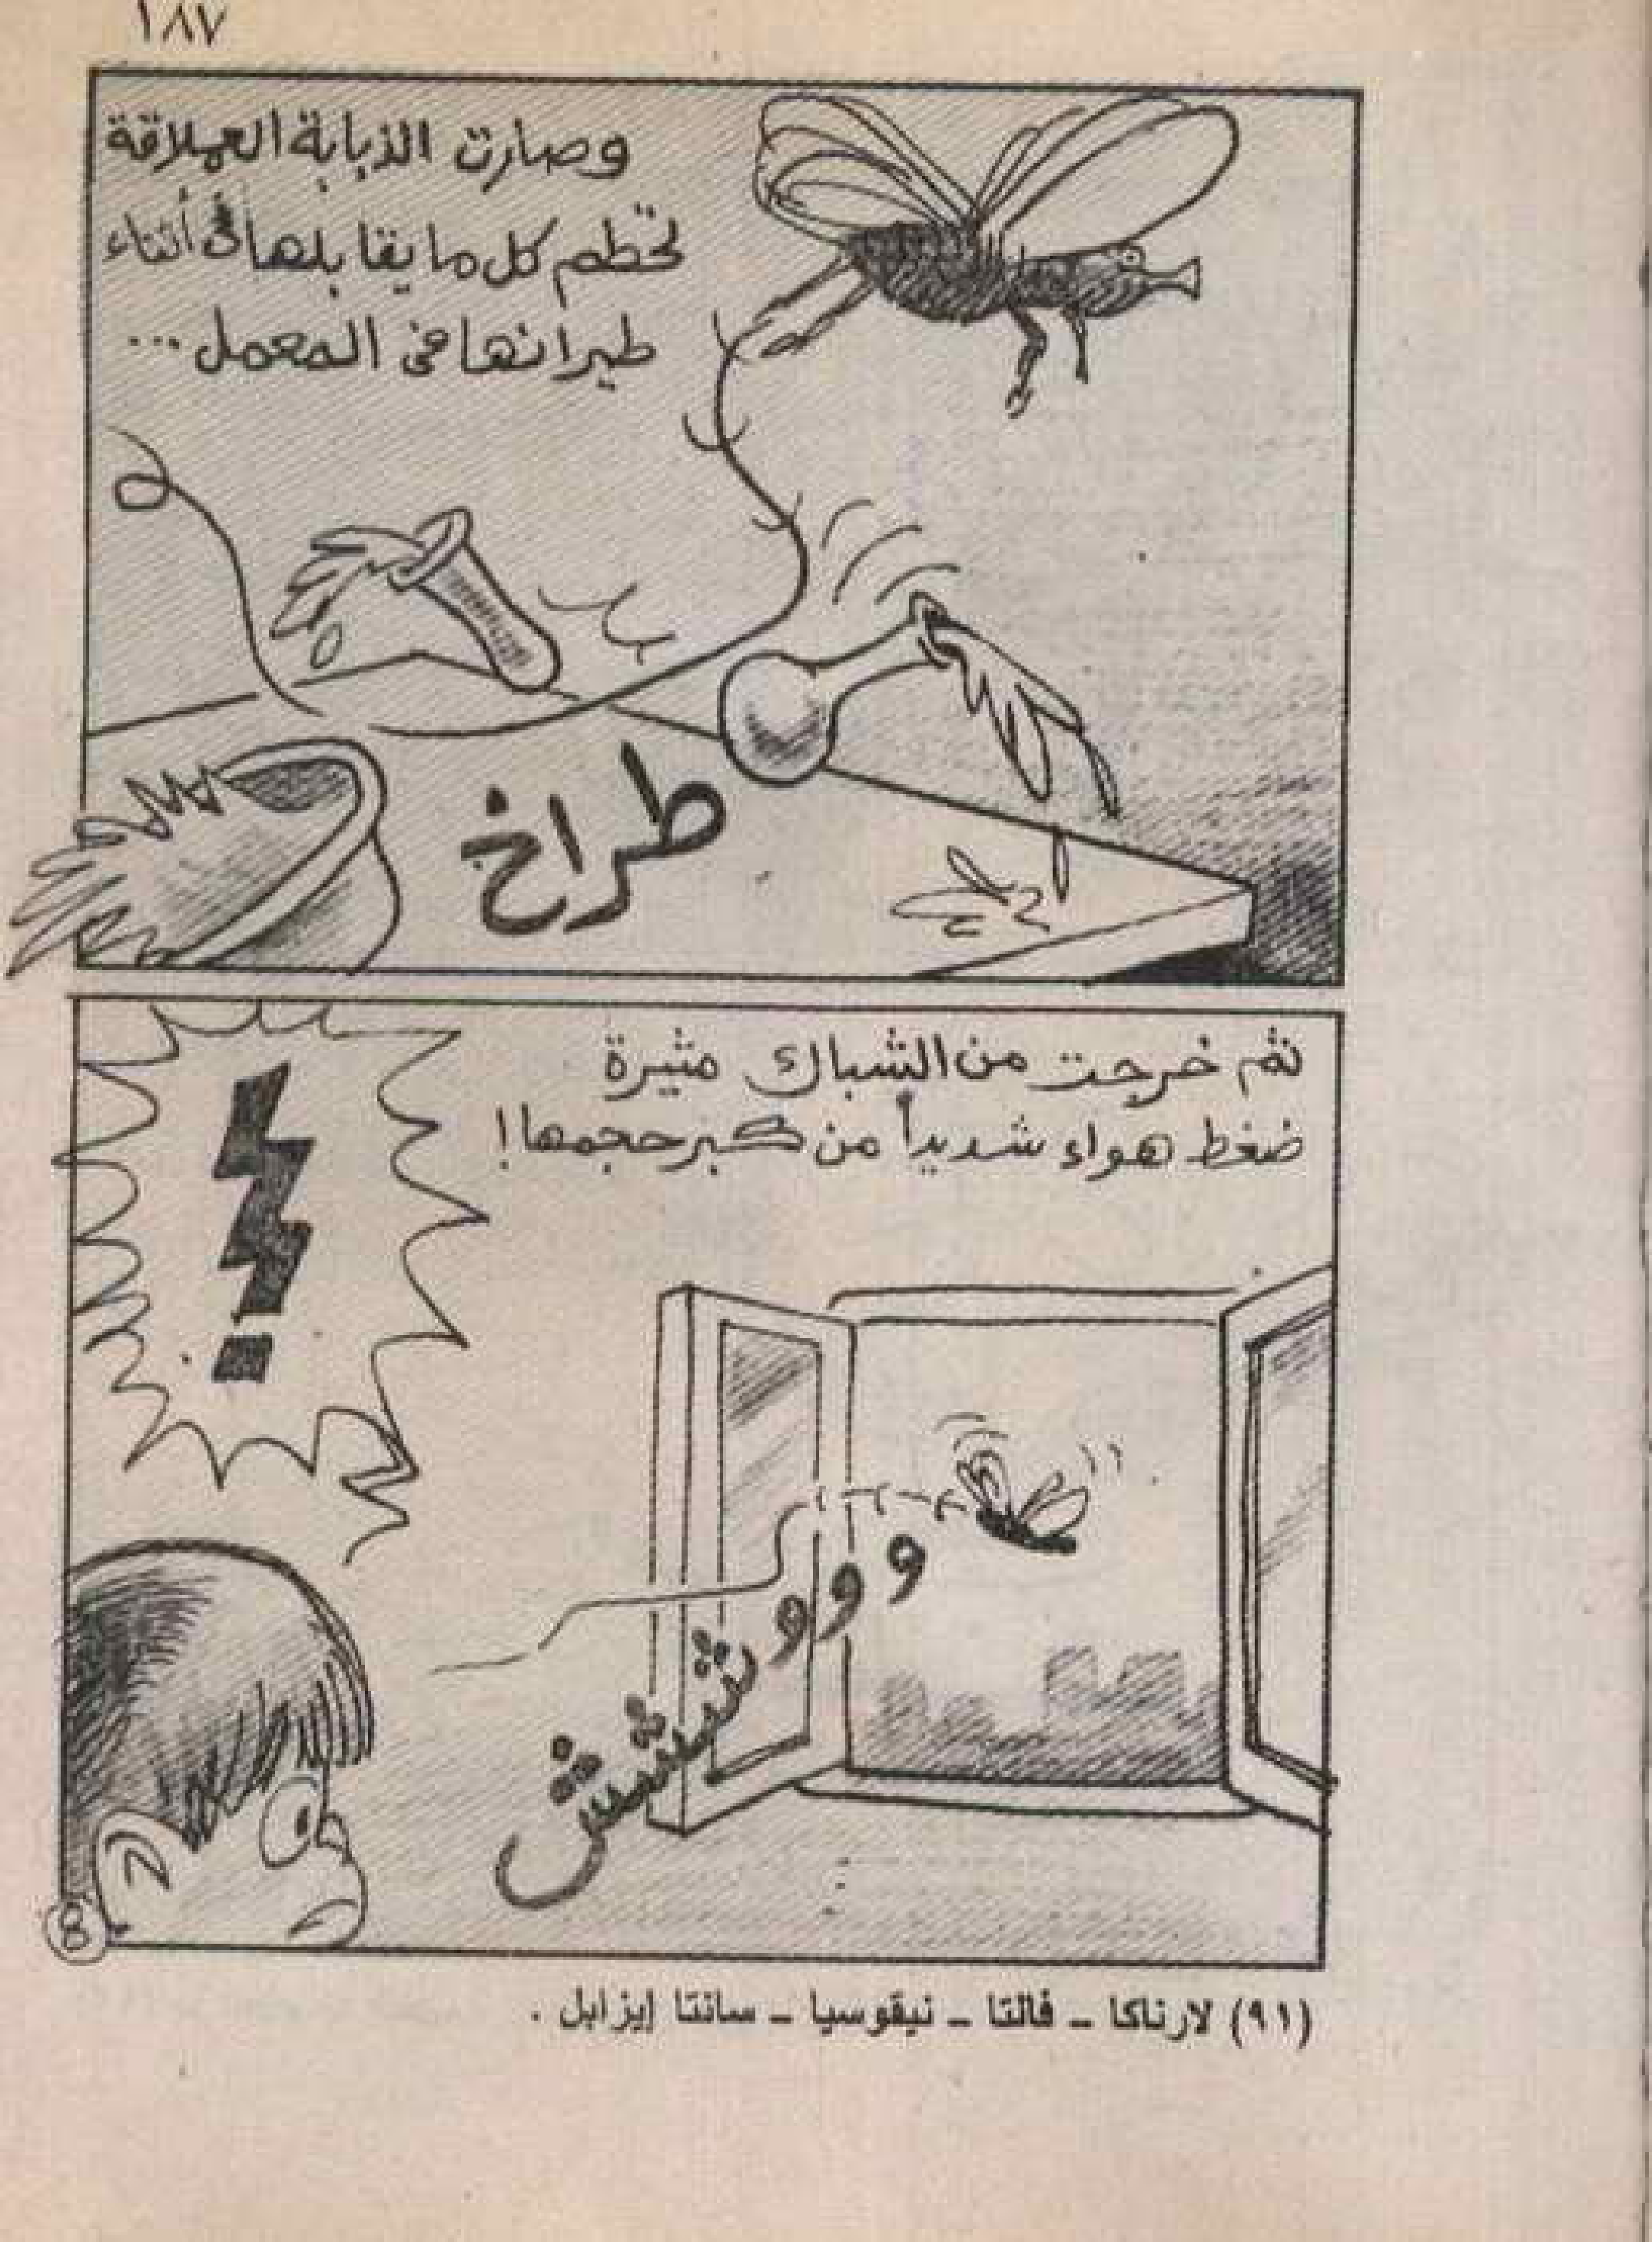 ١٨٧
وصارت الذبابة العملاقة
تحطم كل ما يقابلها في أثناء
طيرانها في المعمل ...
طراخ
ثم خرجت من الشباك مثيرة
ضغط هواء شديداً من كبر حجمها !
!
وووششش
8
(٩١) لارناكا - فالتا - نيقوسيا - سانتا إيزابل .